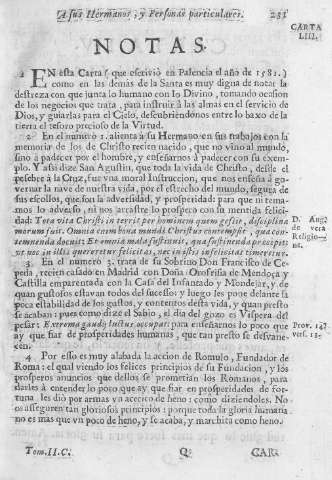 A sus Hermanos, y Personas particulares. 281
CARTA
LIII.
NOTAS.
1 EN esta Carta (que escrivió en Palencia el año de 1581.)
como en las demàs de la Santa es muy digna de notar la
destreza con que junta lo humano con lo Divino, tomando ocasion
de los negocios que trata, para instruir à las almas en el servicio de
Dios, y guiarlas para el Cielo, descubriendonos entre lo baxo de la
tierra el tesoro precioso de la Virtud.
2 En el numero 1. alienta à su Hermano en sus trabajos con la
memoria de los de Christo recien nacido, que no vino al mundo,
sino à padecer por el hombre, y enseñarnos à padecer con su exem-
plo. Y assi dize San Agustin, que toda la vida de Christo, desde el
pesebre à la Cruz, fue vna moral Instruccion, que nos enseña à go-
vernar la nave de nuestra vida, por el estrecho del mundo, segura de
sus escollos, que son la adversidad, y prosperidad: para que ni tema-
mos lo adverso, ni nos arrastre lo prospero con su mentida felici-
dad: Tota vita Christi in terris per hominem quem gessit, disciplina
morum fuit. Omnia enim bona mundi Christus contempsit, qua con-
temnenda docuit: Et omnia mala sustinuit, qua sustinenda præcipit:
vt nec in illis quæreretur felicitas, nec in istis infelicitas timeretur.
D. Aug.
de vera
Religio-
ne.
3 En el numero 2. trata de su Sobrino Don Francisco de Ce-
peda, recien casado en Madrid con Doña Orofrisa de Mendoça y
Castilla emparentada con la Casa del Infantado y Mondejar, y de
quan gustosos estavan todos del sucesso; y luego les pone delante la
poca estabilidad de los gustos, y contentos desta vida, y quan presto
se acaban: pues como dize el Sabio, el dia del gozo es Vispera del
pesar: Extrema gaudij luctus occupat: para enseñarnos lo poco que
ay que fiar de prosperidades humanas, que tan presto se desvane-
cen.
Prov. 14.
vers. 13.
4 Por esso es muy alabada la accion de Romulo, Fundador de
Roma: el qual viendo los felices principios de su Fundacion, y los
prosperos anuncios que dellos se prometian los Romanos, para
darles à entender lo poco que ay que fiar en prosperidades de for-
tuna, les diò por armas vn azecico de heno: como diziendoles. No
os asseguren tan gloriosos principios: porque toda la gloria humana
no es mas que vn poco de heno, y se acaba, y marchita como heno.
Tom. II. C. Q CAR-